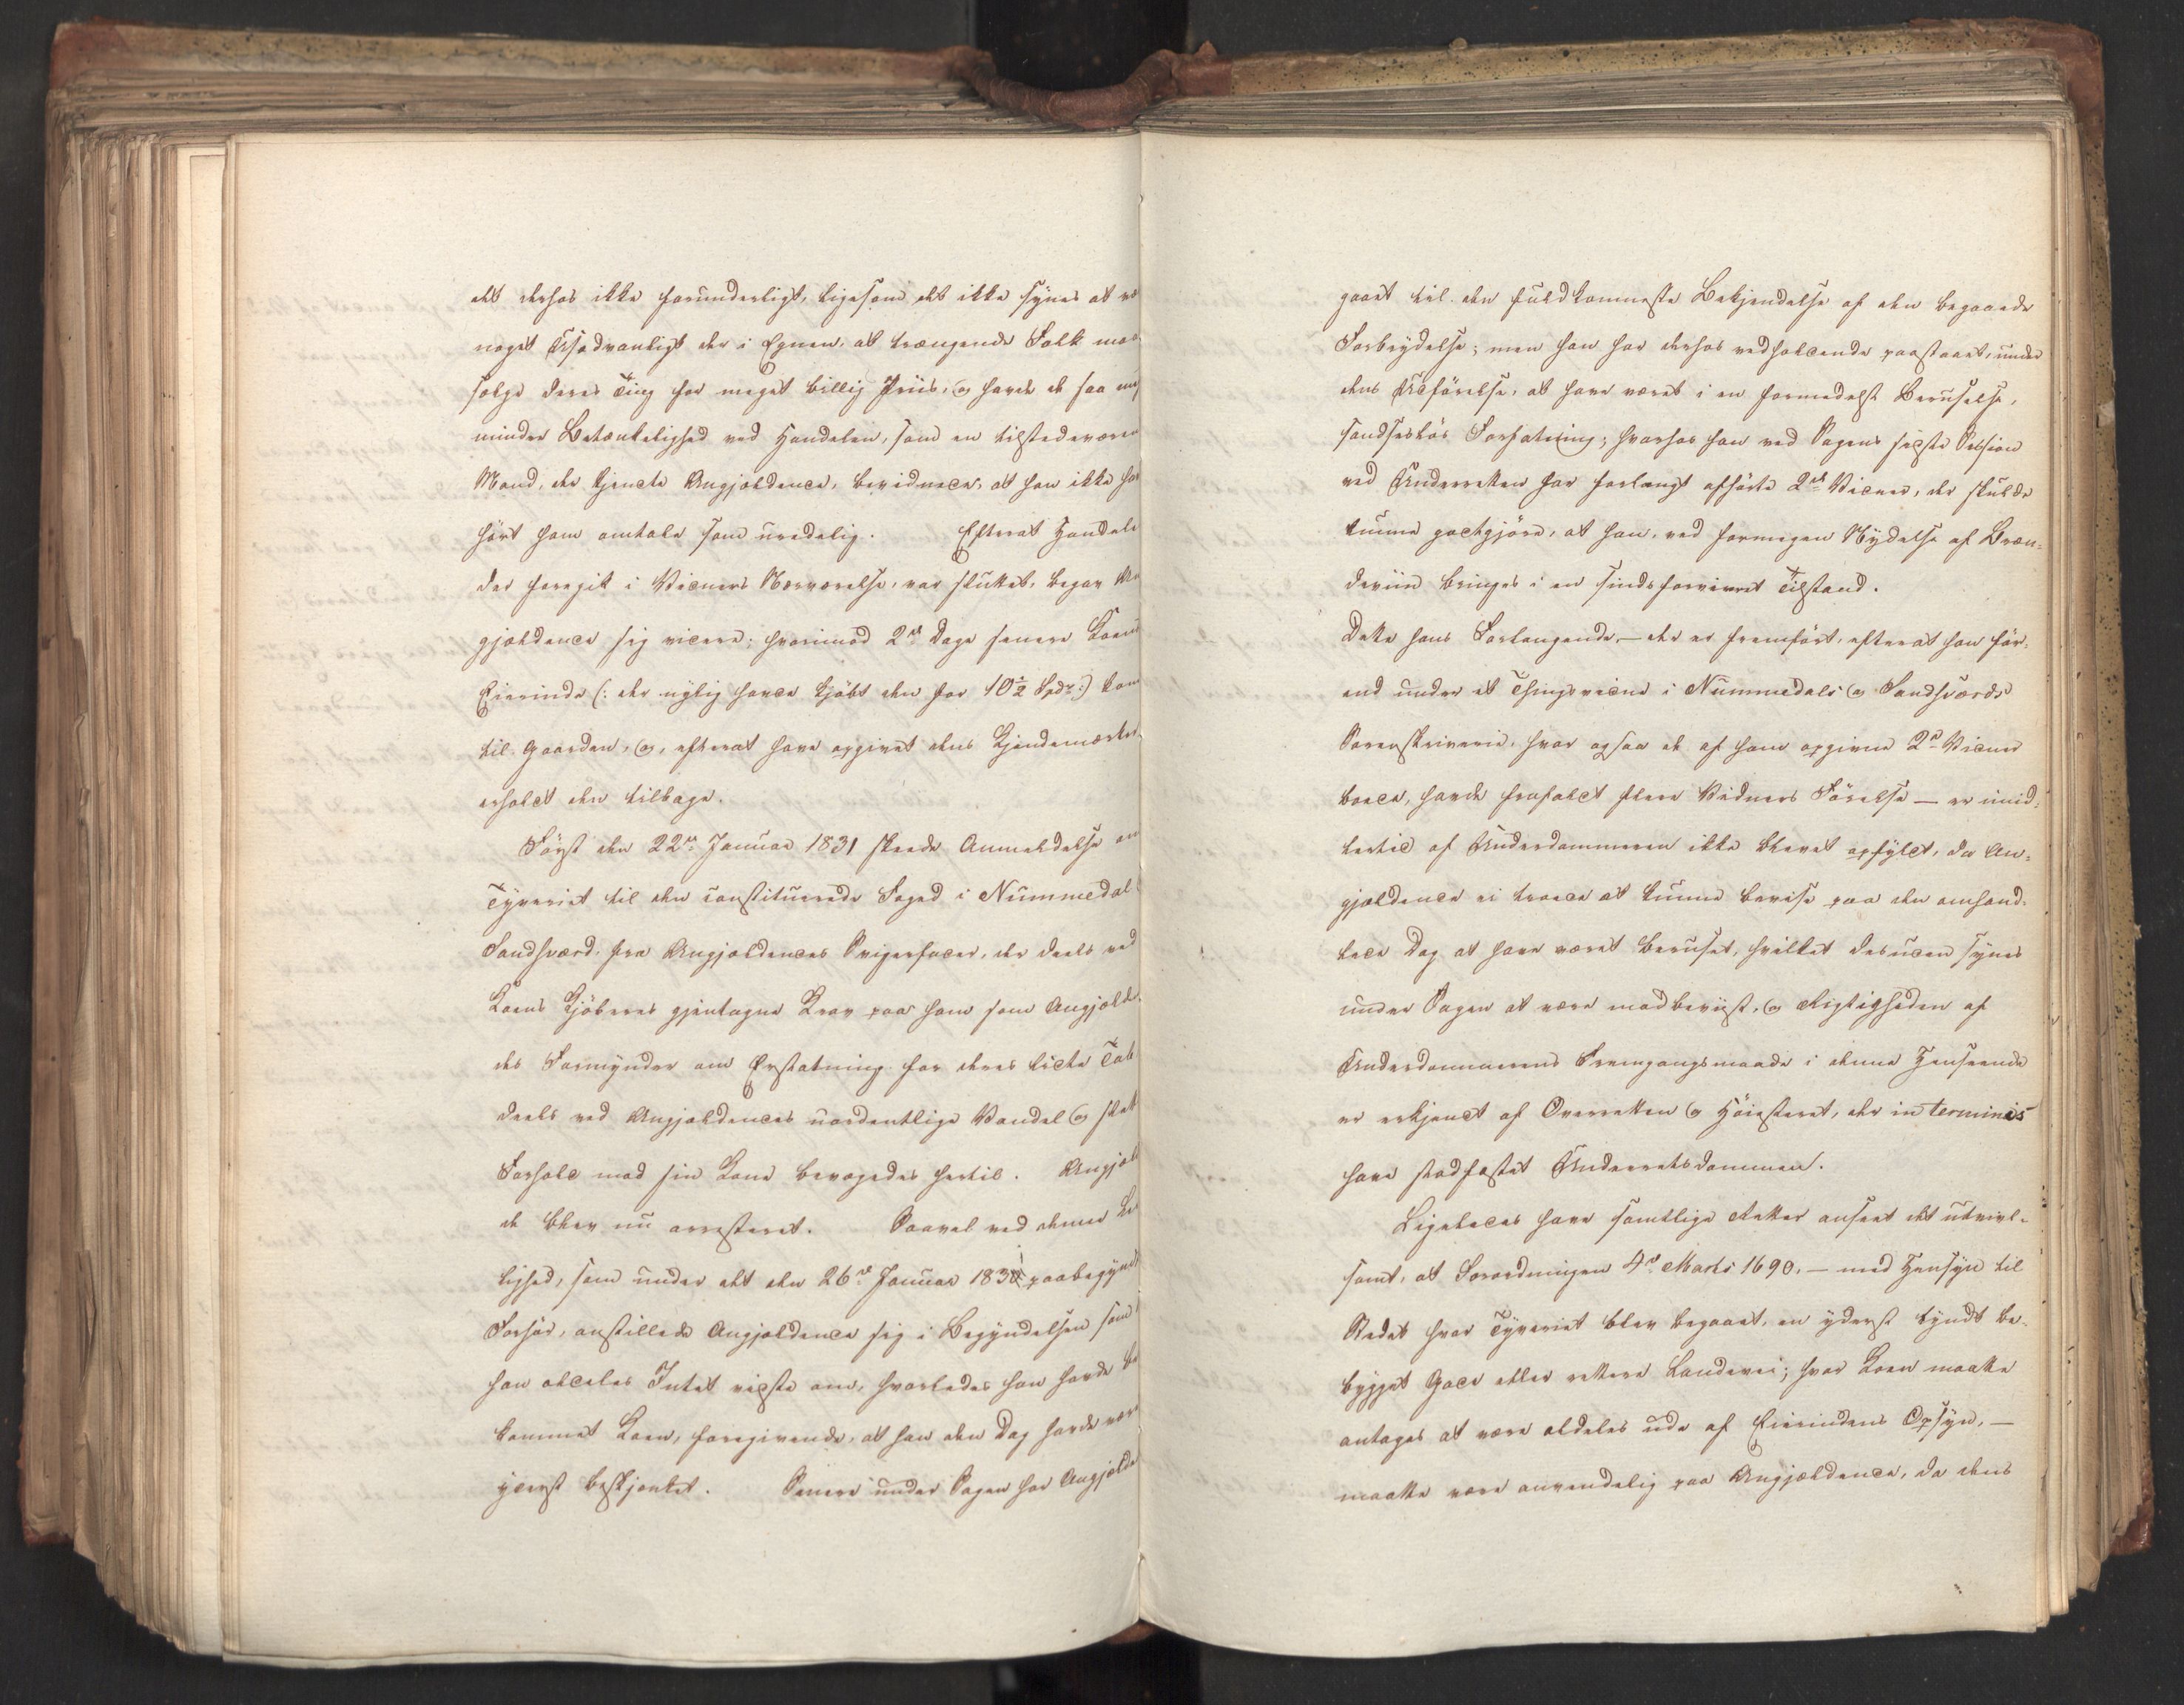 det derhos ikke forunderligt, ligesom det ikke synes at væ
noget Usædvanligt der i Egnen, at trængende Folk maa
sælge deres Ting for meget billig Priis, og havde de saa meg
mindre Betænkelighed ved Handelen, som en tilstedeværen
Mand, der kjendte Angjældende, bevidnede, at han ikke hav
hört ham omtale som uredelig. Efterat Handele
der foregik i Vidners Nærværelse, var sluttet, begav An
gjældende sig videre; hvorimod 2de Dage senere Koens
Eierinde (: der nylig havde kjöbt den for 10½ Spdr:) kom
til Gaarden, og, efterat have opgivet dens Kjendemærker
erholdt den tilbage.
Först den 22de Januar 1831 skeede Anmeldelse om
Tyveriet til den constituerede Foged i Nummedal
Sandsværd fra Angjældendes Svigerfader, der deels ved
Koens Kjöberes gjentagne Krav paa ham som Angjælde
des Formynder om Erstatning for deres lidte Tab
deels ved Angjældendes uordentlige Vandel og slet
Forhold mod sin Kone bevægedes hertil. Angjæl
de blev nu arresteret. Saavel ved denne Lei
lighed, som under det den 26de Januar 1831 paabegyndt
Forhör, anstillede Angjældende sig i Begyndelsen som
han aldeles Intet vidste om, hvorledes han havde be
kommet Koen, foregivende, at han den Dag havde være
yderst beskjenket. Senere under Sagen har Angjælde
gaaet til den fuldkomneste Bekjendelse af den begaaede
Forbrydelse; men han har derhos vedholdende paastaaet, under
dens Udförelse, at have været i en formedelst Beruselse,
sandseslös Forfatning; hvorhos han ved Sagens sidste Session
ved Underretten har forlangt afhörte 2de Vidner, der skulde
kunne godtgjöre, at han, ved formegen Nydelse af Bræn-
deviin bringes i en sindsforvirret Tilstand.
Dette hans Forlangende, — der er fremfört, efterat han för-
end under et Thingsvidne i Nummedals og Sandsværds
Sorenskriverie, hvor ogsaa de af ham opgivne 2de Vidner
boede, havde frafaldt flere Vidners Förelse — er imid-
lertid af Underdommeren ikke blevet opfyldt, da An-
gjældende ei troede at kunne bevise paa den omhand-
lede Dag at have været beruset, hvilket desuden synes
under Sagen at være modbeviist, og Rigtigheden af
Underdommerens Fremgangsmaade i denne Henseende
er erkjendt af Overretten og Höiesteret, der in terminis
have stadfæstet Underretsdommen.
Ligeledes have samtlige Retter anseet det utvivl-
somt, at Forordningen 4de Marts 1690, — med Hensyn til
Stedet hvor Tyveriet blev begaaet, en yderst tyndt be-
bygget Gade eller rettere Landevei; hvor Koen maatte
antages at være aldeles ude af Eierindens Opsyn, —
maatte være anvendelig paa Angjældende, da dens